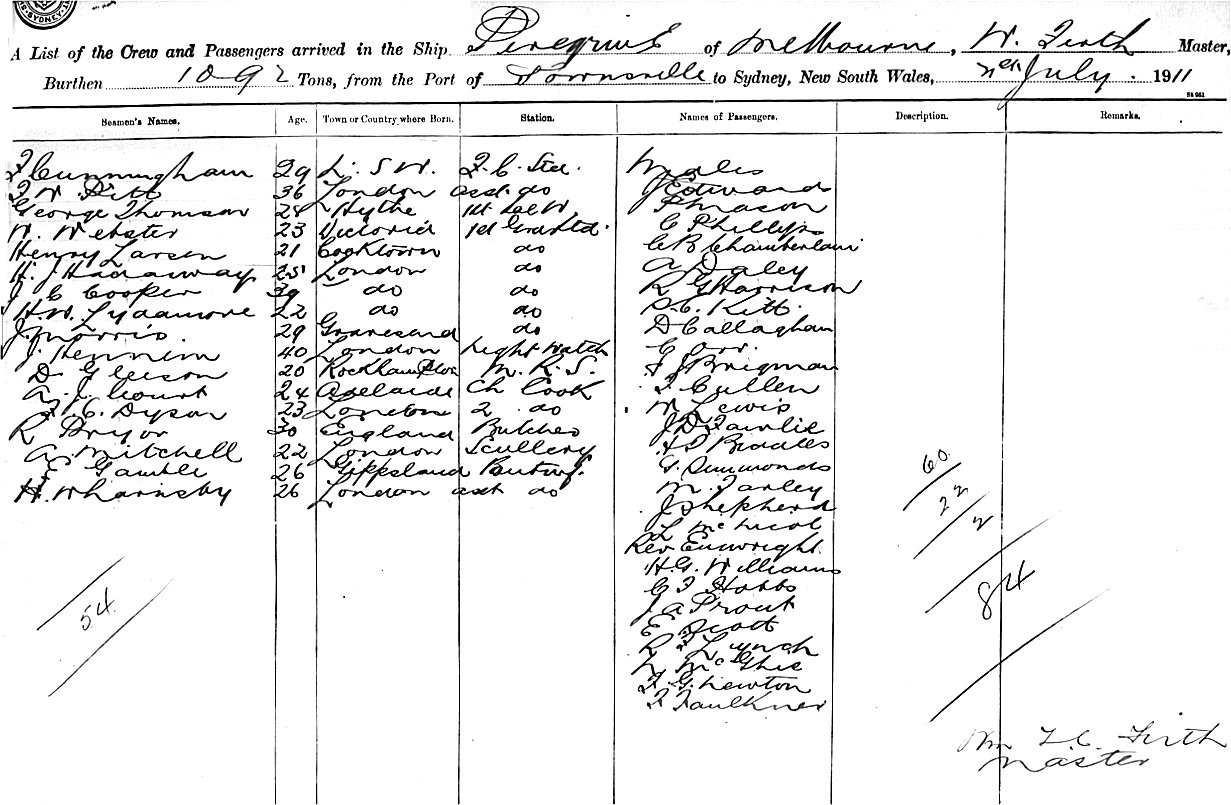 SYDNEY
A List of the Crew and Passengers arrived in the Ship Peregrine of Melbourne, W. Firth Master,
Burthen 1092 Tons, from the Port of Townsville to Sydney, New South Wales, July 1911
Seamen's Names. Age. Town or Country where Born. Station. Names of Passengers. Description. Remarks.
J Cunningham 29 N. S W. F. C. Std. Males
F W Pitt 36 London asst. do J Edward
George Thomson 24 Hythe 1st Sal W. P Mason
W. Webster 23 Victoria 1st Grad Std. C Phillips
Henry Larsen 21 Cooktown do C B Chamberlain
H. J Hadaway 25 London do A Daley
J C Cooper 39 do do R G Harrison
H. W. Lydamore 22 do do S. C. Kitt
J. Morris. 29 Gravesend do D Callaghan
J. Hennim 40 London Night Watch C Orr.
D Gleeson 20 Rockhampton M. R. S. F J Brigman
A. J. Court 24 Adelaide Ch Cook F Cullen
C. Dyson 23 London 2 do M Lewis
R Pryor 30 England Butcher J D Fairlie
A Mitchell 22 London Scullery H S Beadles
E Gamble 26 Gippsland Pantry. G. Simmonds
H. Wharnsby 26 London asst do M. Farley
J Shepherd
L McNicol
Rev Enwright
H. G. Williams
C F Hobbs
J A Prout
E Scott
R Lynch
McGhie
F. G. Newton
F Faulkner
54.
60.
22
2
84
Wm F. C. Firth
Master